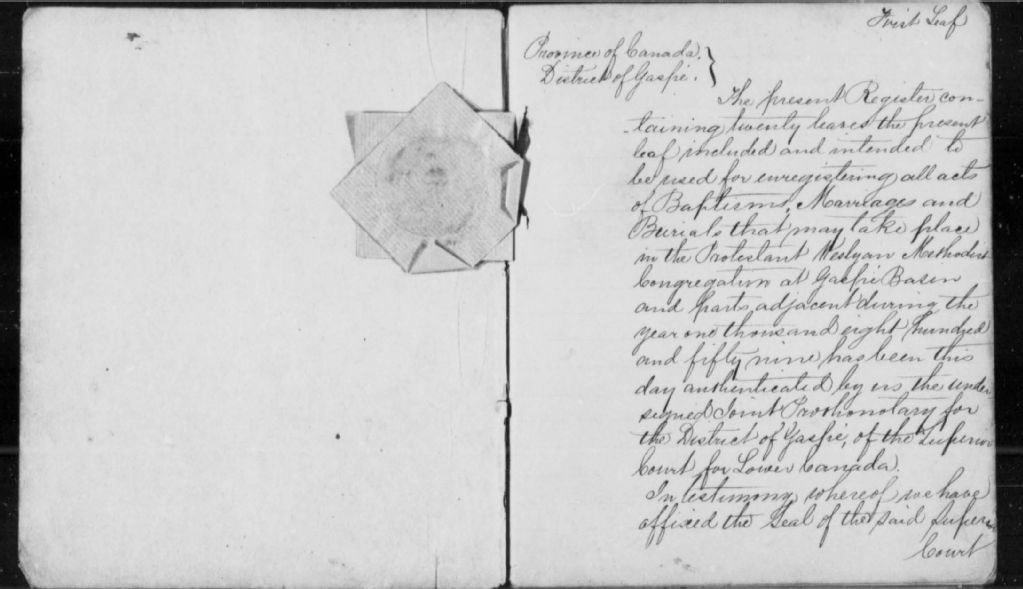 First Leaf
Province of Canada.
District of Gaspé.
The present Register con-
-taining twenty leaves the present
leaf included and intended to
be used for enregistering all acts
of Baptisms, Marriages and
Burials that may take place
in the Protestant Weslyan Methodist
Congregation at Gaspé Basin
and parts adjacent during the
year one thousand eight hundred
and fifty nine has been this
day authenticated by us the under
signed Joint Prothonotary for
the District of Gaspé, of the Superior
Court for Lower Canada.
In testimony whereof we have
affixed the Seal of the said Superior
Court